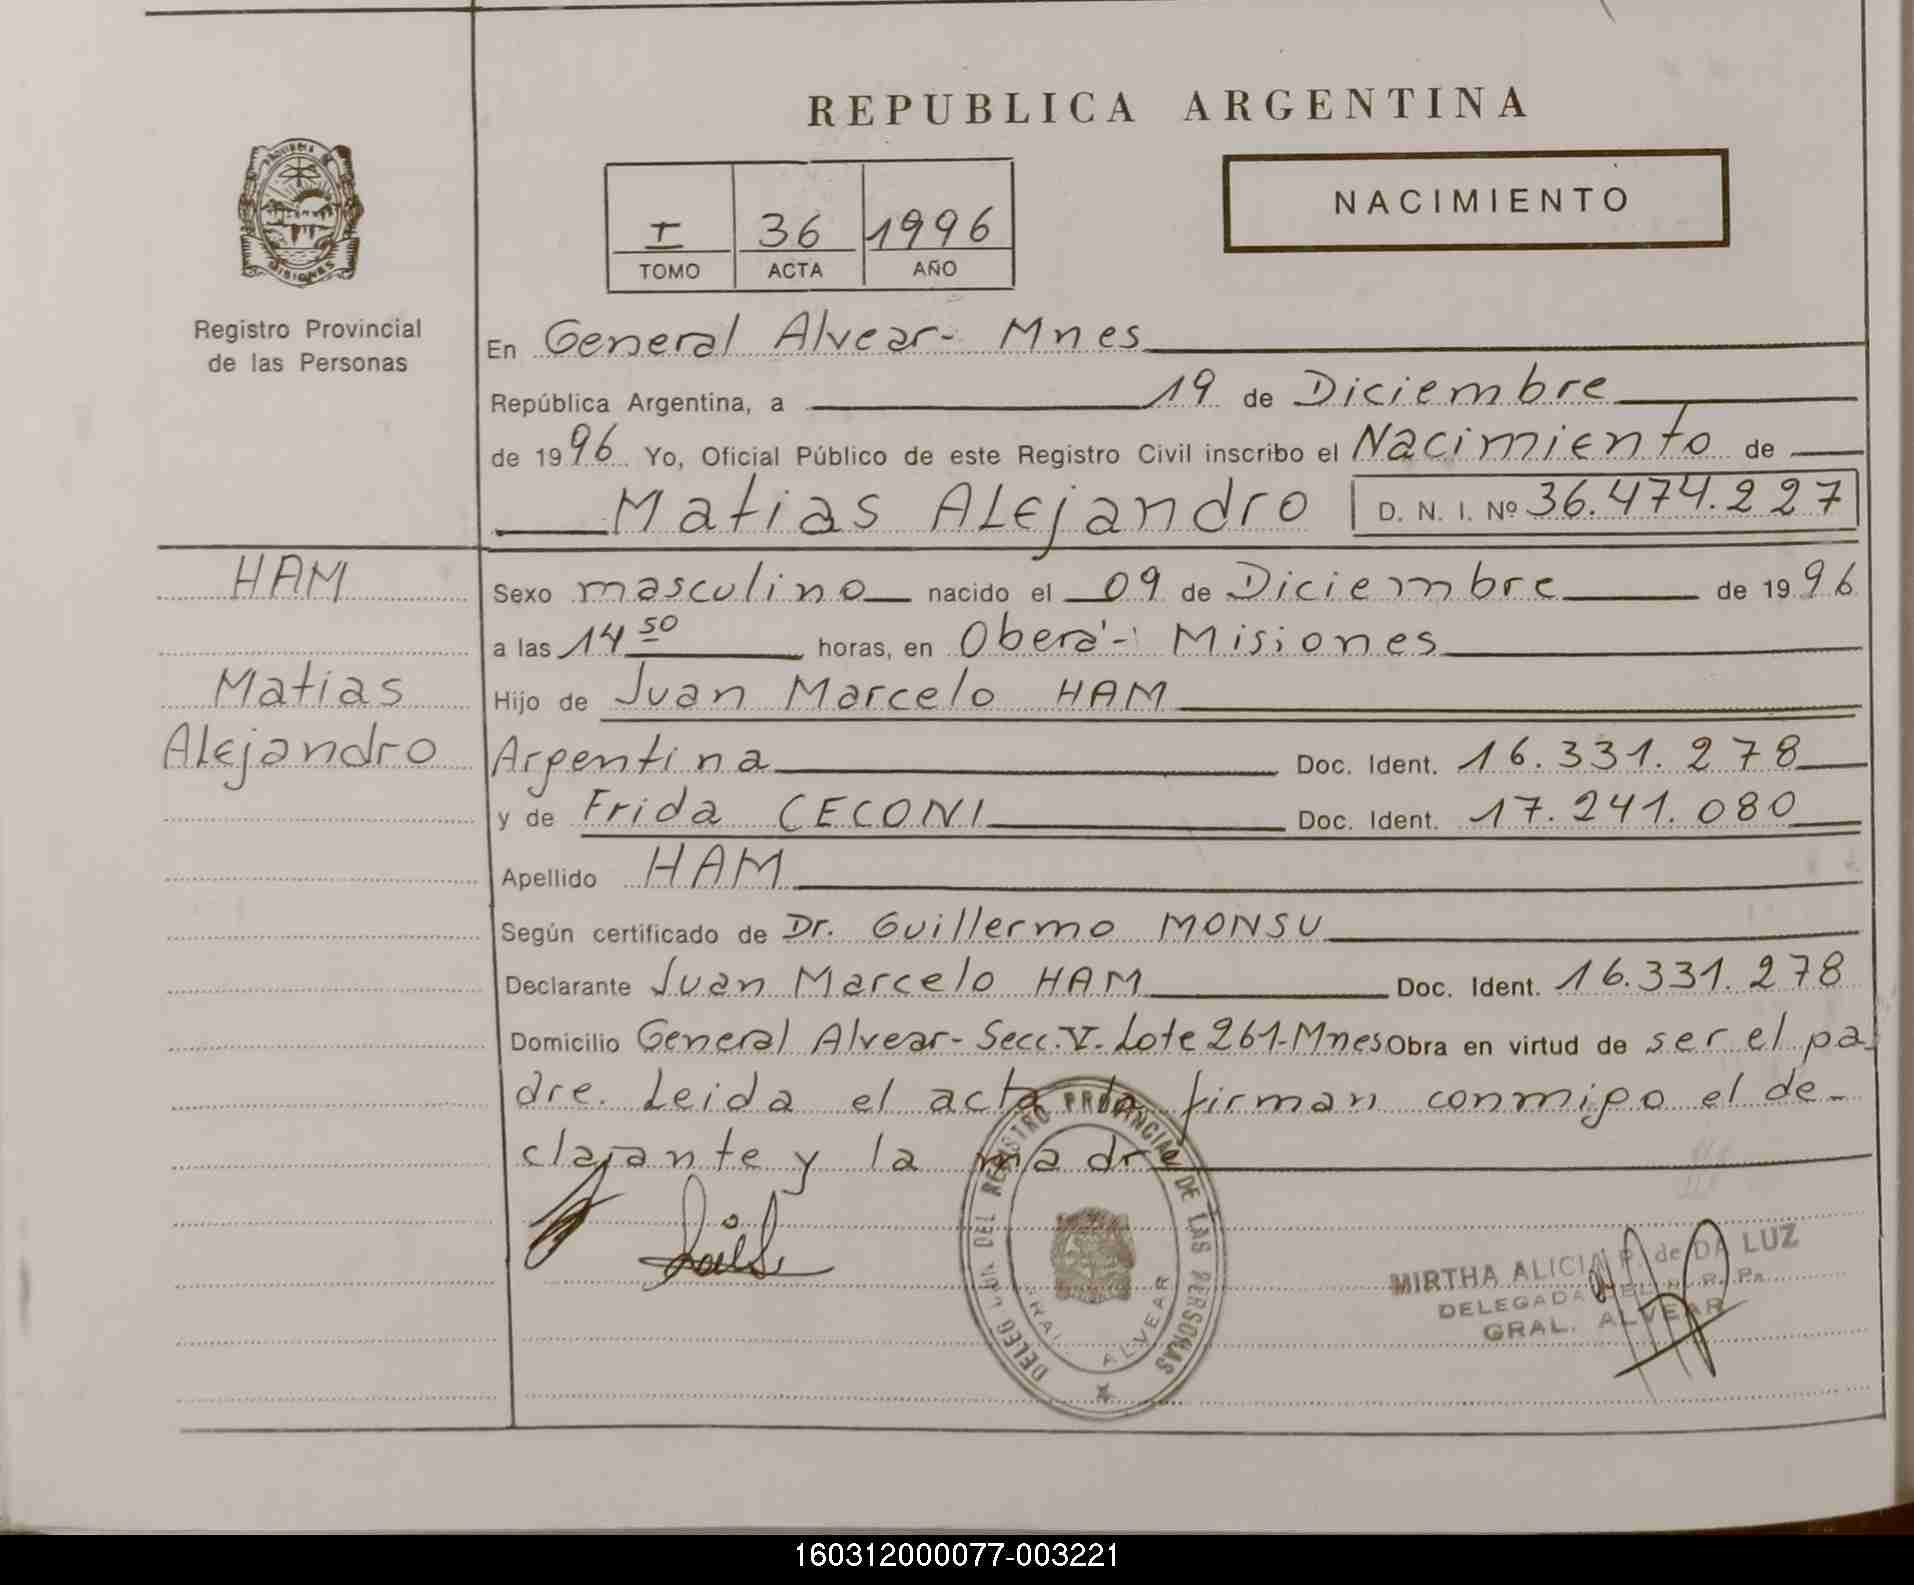 REPUBLICA ARGENTINA
NACIMIENTO
I 36 1996
TOMO ACTA AÑO
Registro Provincial
de las Personas
En General Alvear- Mnes
República Argentina, a 19 de Diciembre
de 1996 Yo, Oficial Público de este Registro Civil inscribo el Nacimiento de
Matias ALEjandro D. N. I. Nº 36.474.227
HAM
Matias
ALEjandro
Sexo masculino nacido el 09 de Diciembre de 1996
a las 14 50 horas, en Oberá- Misiones
Hijo de Juan Marcelo HAM
Argentina Doc. Ident. 16.331.278
y de Frida CECONI Doc. Ident. 17.241.080
Apellido HAM
Según certificado de Dr. Guillermo MONSU
Declarante Juan Marcelo HAM Doc. Ident. 16.331.278
Domicilio General Alvear- Secc. V. Lote 261-Mnes Obra en virtud de ser el pa
dre. Leida el acta la firman conmigo el de-
clarante y la madre
DELEG DEL REGISTRO PROVINCIAL DE LAS PERSONAS
GRAL. ALVEAR
MIRTHA ALICIA P. de DA LUZ
DELEGADA DEL R. P.
GRAL. ALVEAR
160312000077-003221